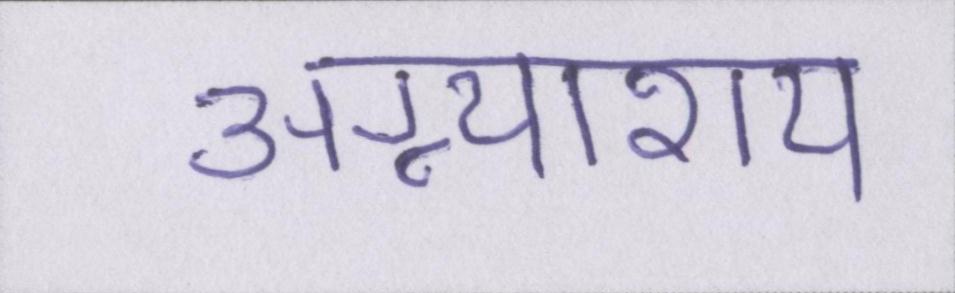 अग्न्याशय